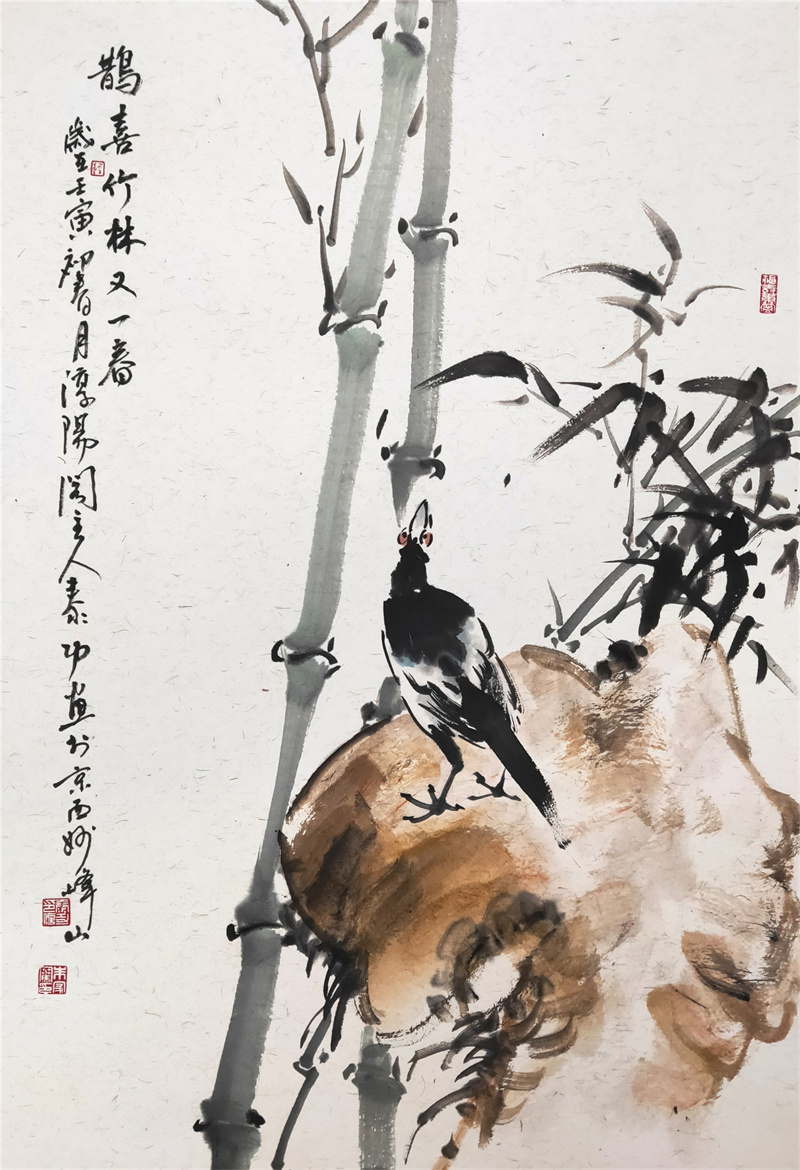 鵲喜竹林又一春
歲在壬寅初春月淳陽閣主人泰功画於京西妙峰山